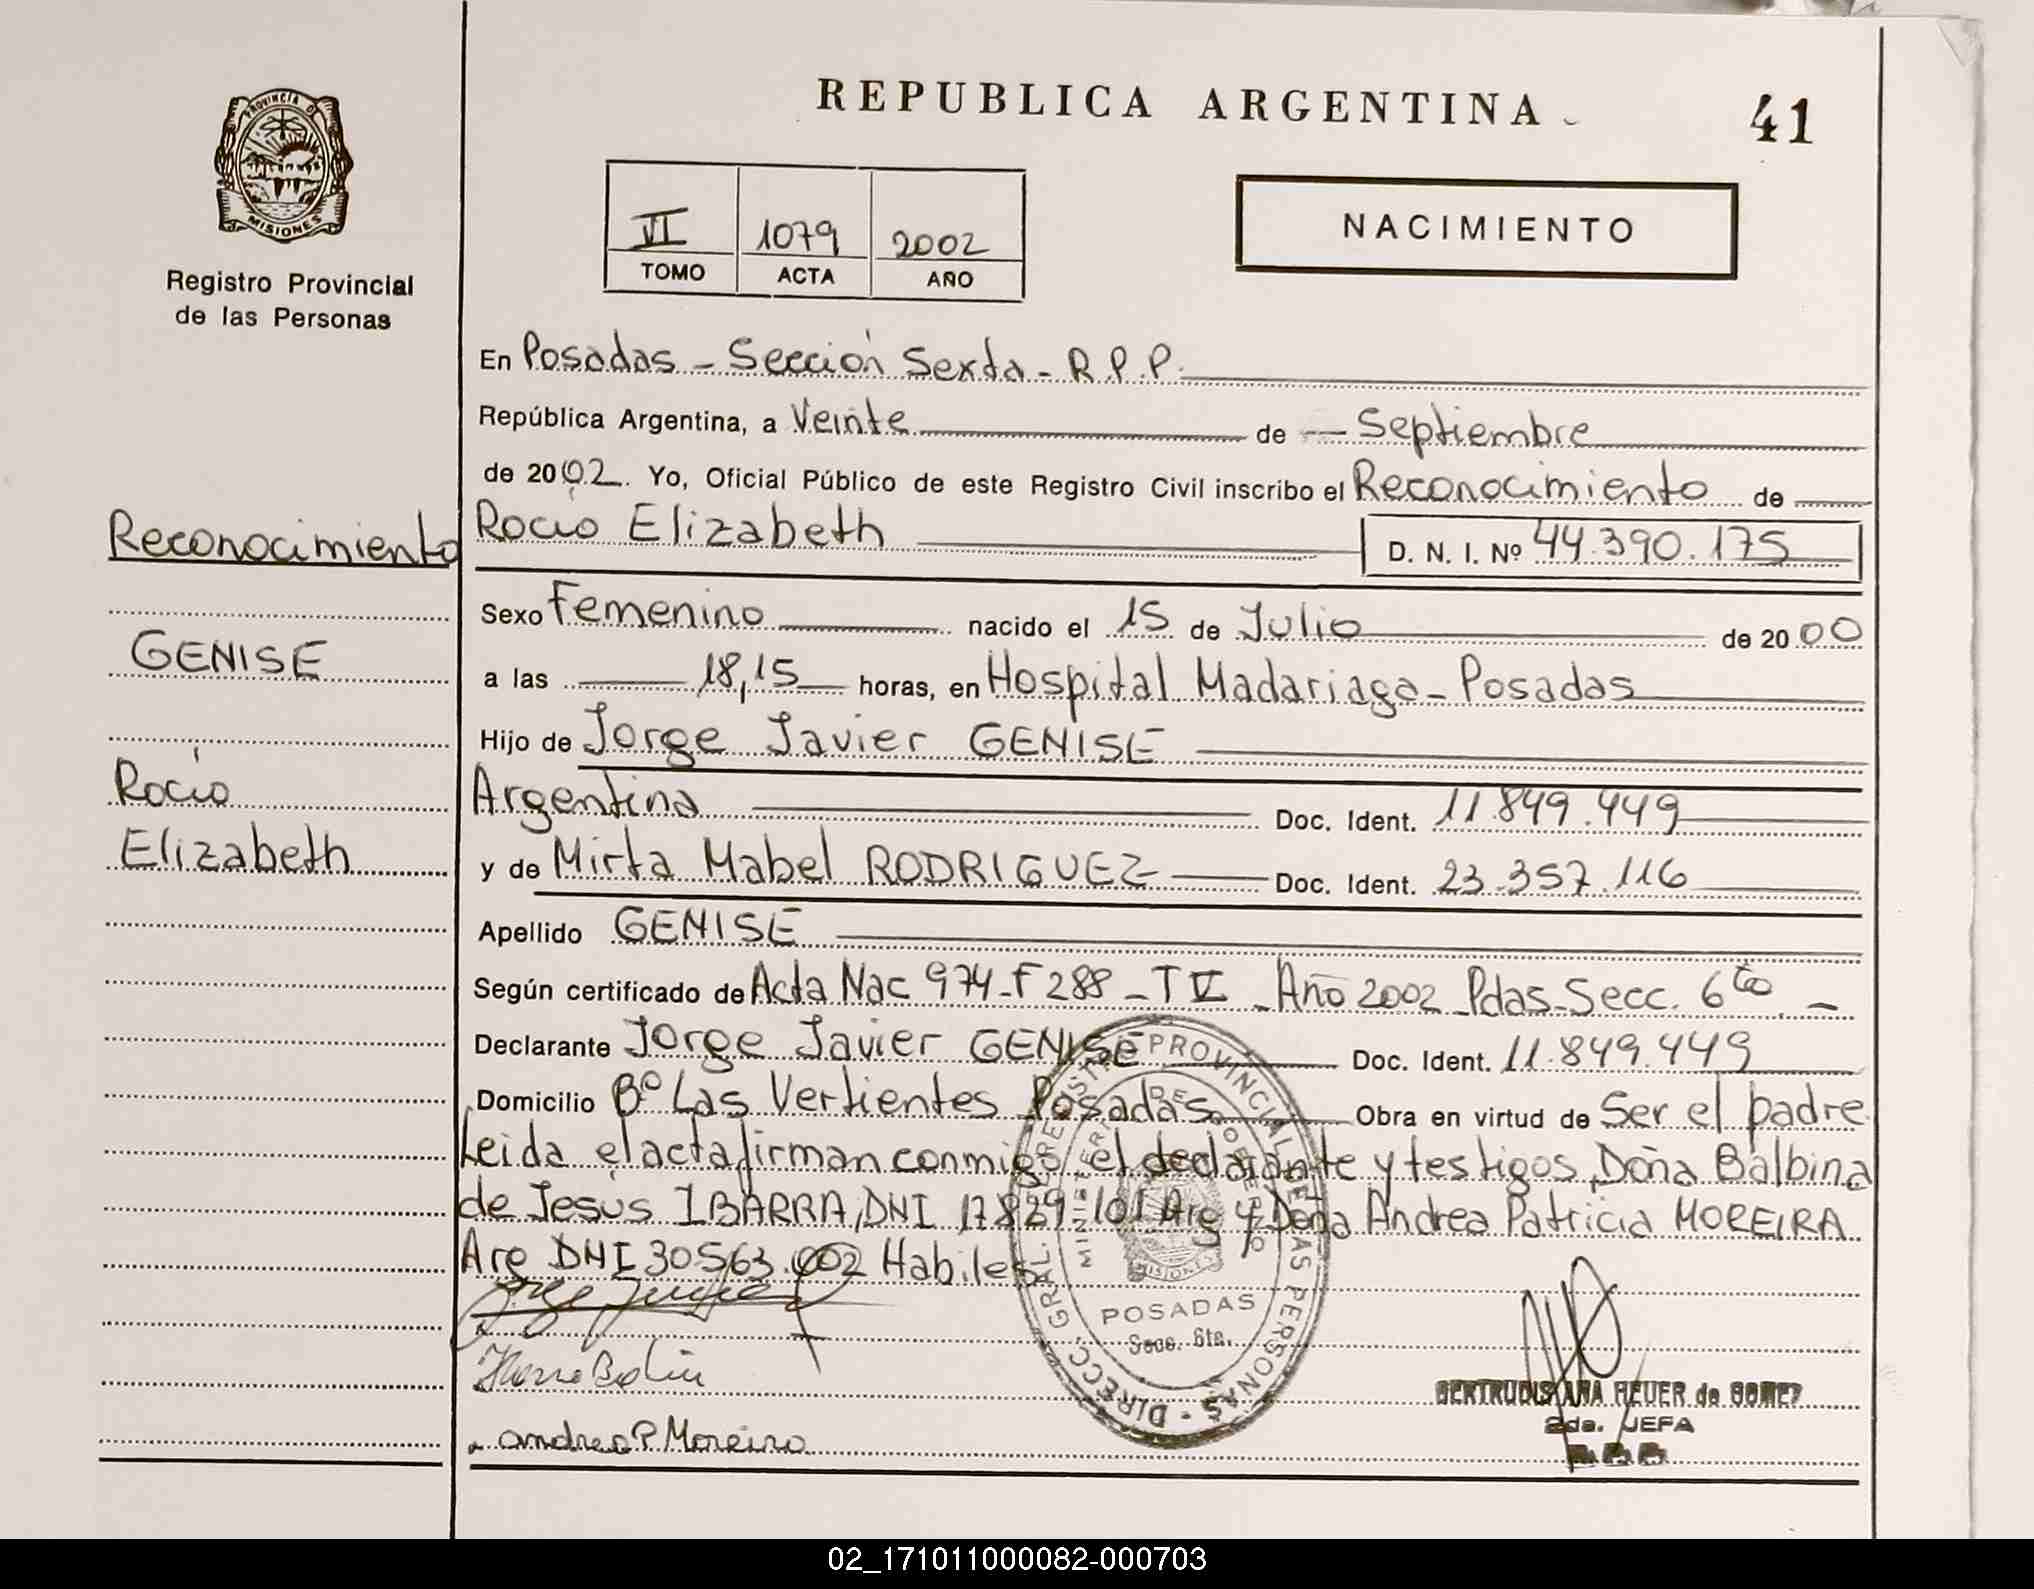 REPUBLICA ARGENTINA
41
PROVINCIA DE
MISIONES
Registro Provincial
de las Personas
VI 1079 2002
TOMO ACTA AÑO
NACIMIENTO
En Posadas - Sección Sexta - R.P.P.
República Argentina, a Veinte de Septiembre
de 2002. Yo, Oficial Público de este Registro Civil inscribo el Reconocimiento de
Rocío Elizabeth D. N. I. Nº 44.390.175
Reconocimiento
GENISE
Rocío
Elizabeth
Sexo Femenino nacido el 15 de Julio de 2000
a las 18,15 horas, en Hospital Madariaga - Posadas
Hijo de Jorge Javier GENISE
Argentina Doc. Ident. 11.849.449
y de Mirta Mabel RODRIGUEZ Doc. Ident. 23.357.116
Apellido GENISE
Según certificado de Acta Nac 974 - F 288 - T V - Año 2002 Pdas - Secc. 6ta -
Declarante Jorge Javier GENISE Doc. Ident. 11.849.449
Domicilio Bº Las Vertientes Posadas Obra en virtud de Ser el padre
Leida el acta firman conmigo el declarante y testigos, Doña Balbina
de Jesús IBARRA, DNI 17.829.101 Arg y Doña Andrea Patricia MOREIRA
Arg DNI 30563.002 Habiles
Andrea P. Moreira
DIRECC. GRAL. REGISTRO PROVINCIAL DE LAS PERSONAS
MINISTERIO DE GOBIERNO
MISIONES
POSADAS
Secc. 6ta.
GERTRUDIS ANA REUER de GOMEZ
2da. JEFA
02_171011000082-000703